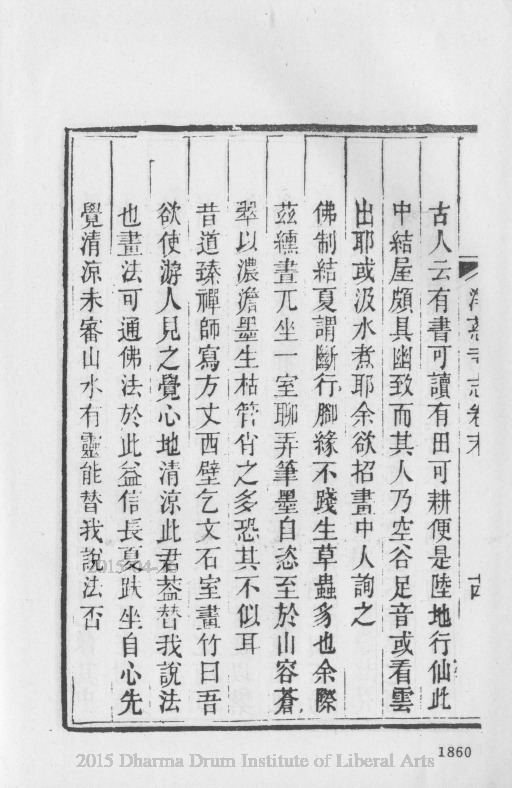 寺志卷末
十
古人云有書可讀有田可耕便是陸地行仙此
中結屋頗具幽致而其人乃空谷足音或看雲
出耶或汲水煮耶余欲招畫中人詢之
佛制結夏謂斷行腳緣不踐生草蟲豸也余際
茲纁晝兀坐一室聊弄筆墨自恣至於山容蒼
翠以濃澹墨生枯管肖之多恐其不似耳
昔道臻禪師寫方丈西壁乞文石室畫竹曰吾
欲使游人見之覺心地清涼此君葢替我說法
也畫法可通佛法於此益信長夏趺坐自心先
覺清涼未審山水有靈能替我說法否
2015-04-
1860
2015 Dharma Drum Institute of Liberal Arts